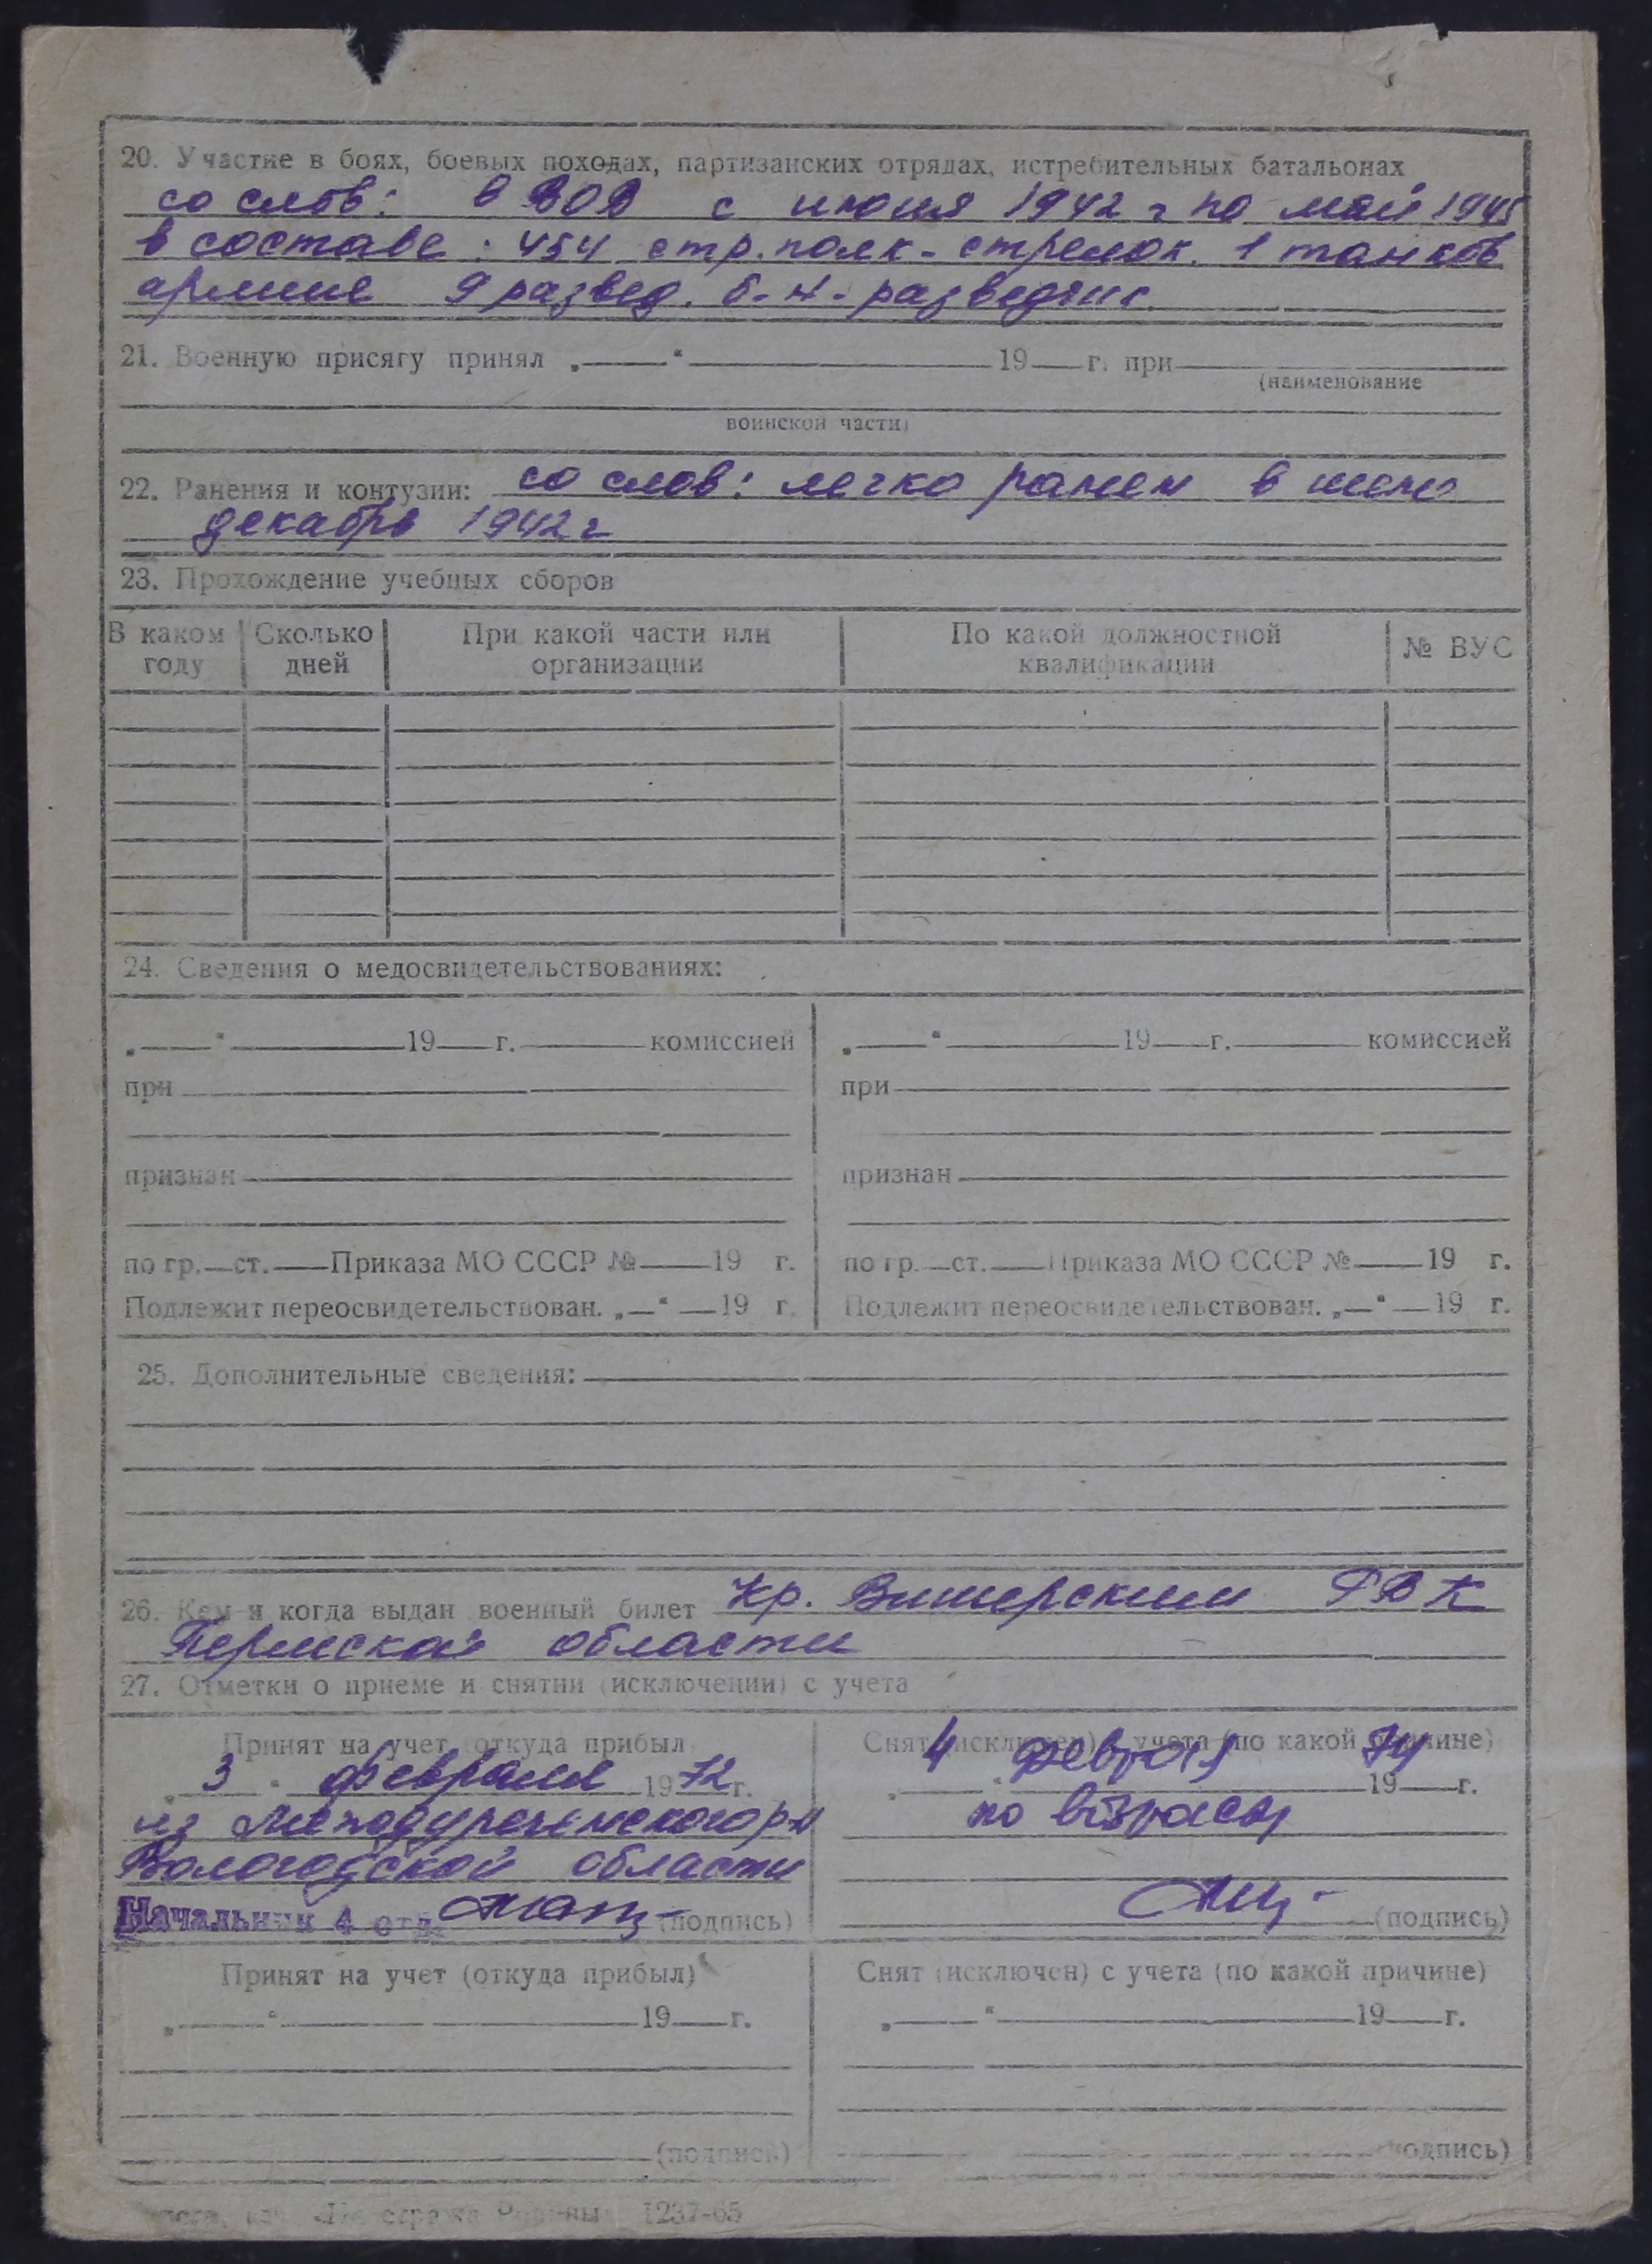 20. Участие в боях, боевых походах, партизанских отрядах, истребительных батальонах
со слов: в ВОВ с июня 1942 г по май 1945
в составе: 454 стр. полк - стрелок. 1 танков
армии 9 развед. б-н - разведчик
21. Военную присягу принял „ “ 19 г. при
(наименование
воинской части)
22. Ранения и контузии: со слов: легко ранен в шею
декабрь 1942 г
23. Прохождение учебных сборов
В каком году Сколько дней При какой части или организации По какой должностной квалификации № ВУС
24. Сведения о медосвидетельствованиях:
„ “ 19 г. комиссией „ “ 19 г. комиссией
при при
признан признан
по гр. ст. Приказа МО СССР № 19 г. по гр. ст. Приказа МО СССР № 19 г.
Подлежит переосвидетельствован. „ “ 19 г. Подлежит переосвидетельствован. „ “ 19 г.
25. Дополнительные сведения:
26. Кем и когда выдан военный билет Кр. Вишерским РВК
Пермской области
27. Отметки о приеме и снятии (исключении) с учета
Принят на учет (откуда прибыл) Снят (исключен) с учета (по какой причине)
„ 3 “ февраля 1972 г. „ 4 “ февраля 1974 г.
из Междуреченского р-н по возрасту
Вологодской области
Начальник 4 отд. (подпись) (подпись)
Принят на учет (откуда прибыл) Снят (исключен) с учета (по какой причине)
„ “ 19 г. „ “ 19 г.
(подпись) подпись)
1237-65